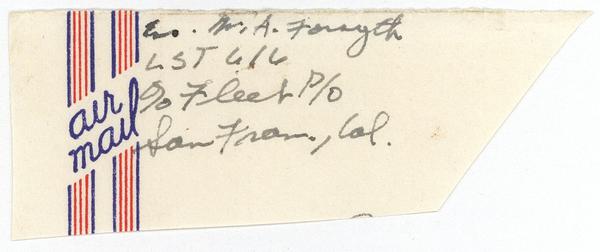 Ens. W. A. Forsyth
LST 616
c/o Fleet P/O
San Fran., Cal.
air
mail